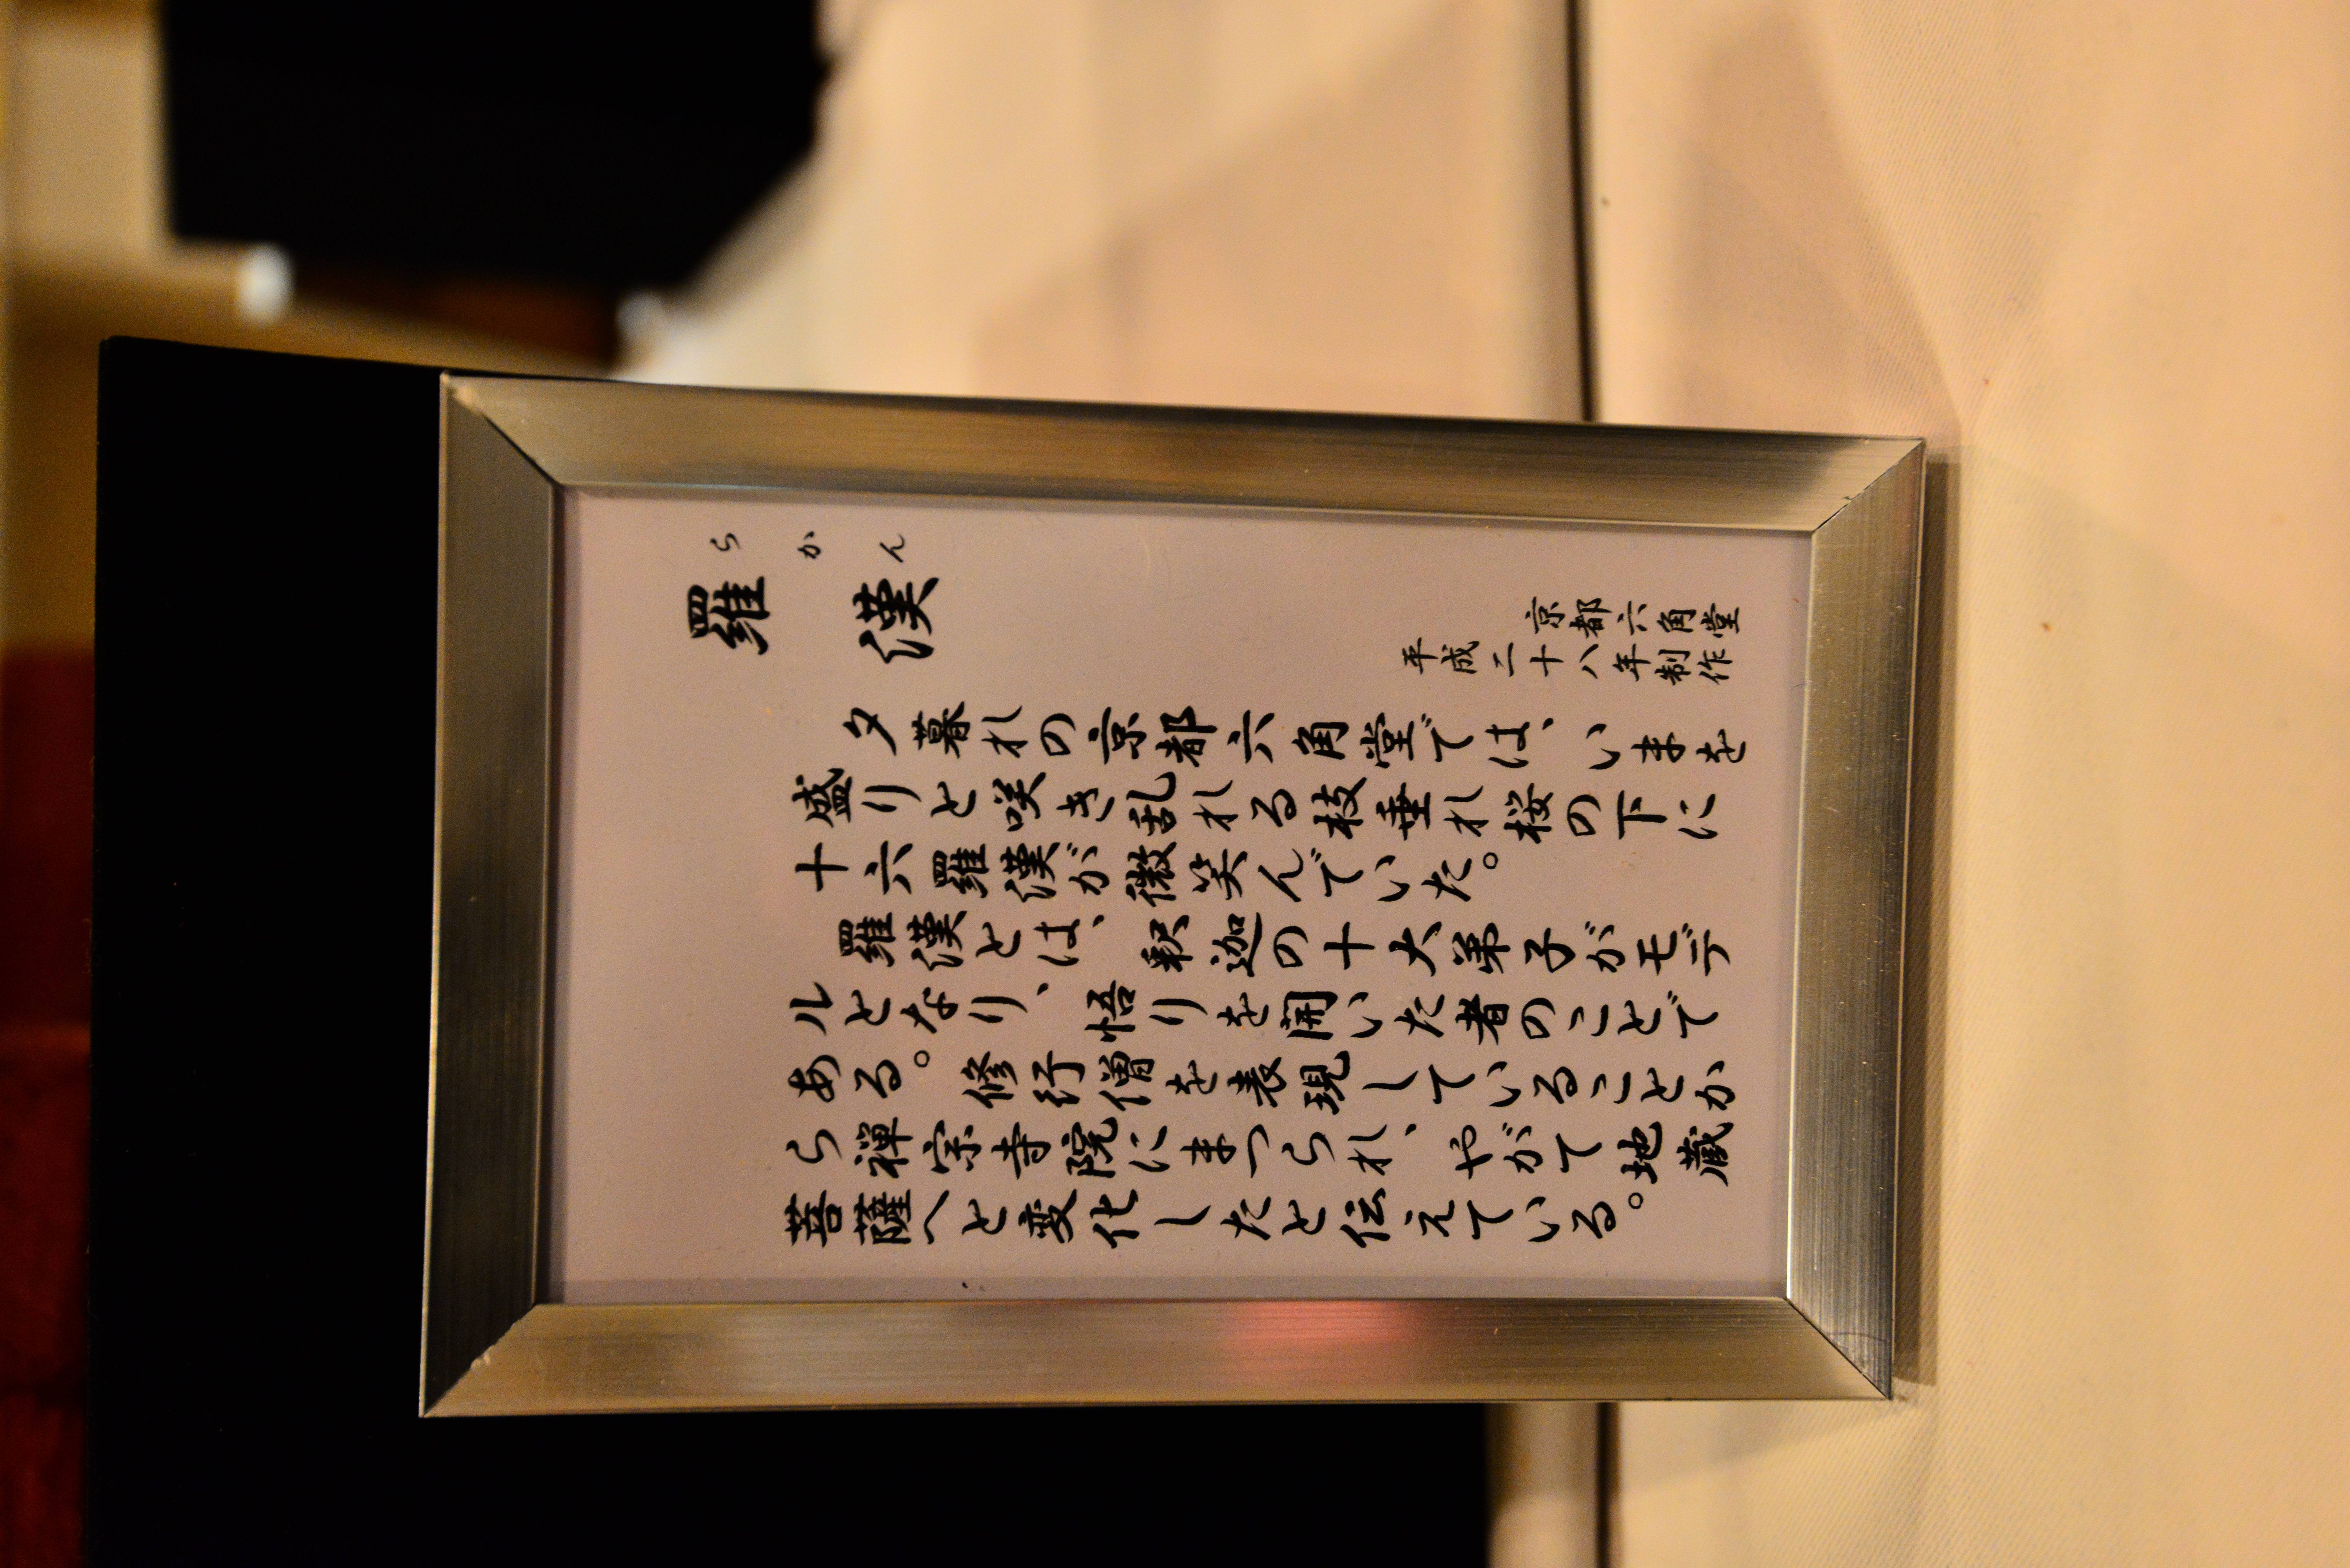 らかん
羅漢
京都六角堂
平成二十八年制作
夕暮れの京都六角堂では、いまを
盛りと咲き乱れる枝垂れ桜の下に
十六羅漢が微笑んでいた。
羅漢とは、釈迦の十大弟子がモデ
ルとなり、悟りを開いた者のことで
ある。修行僧を表現していることか
ら禅宗寺院にまつられ、やがて地蔵
菩薩へと変化したと伝えている。